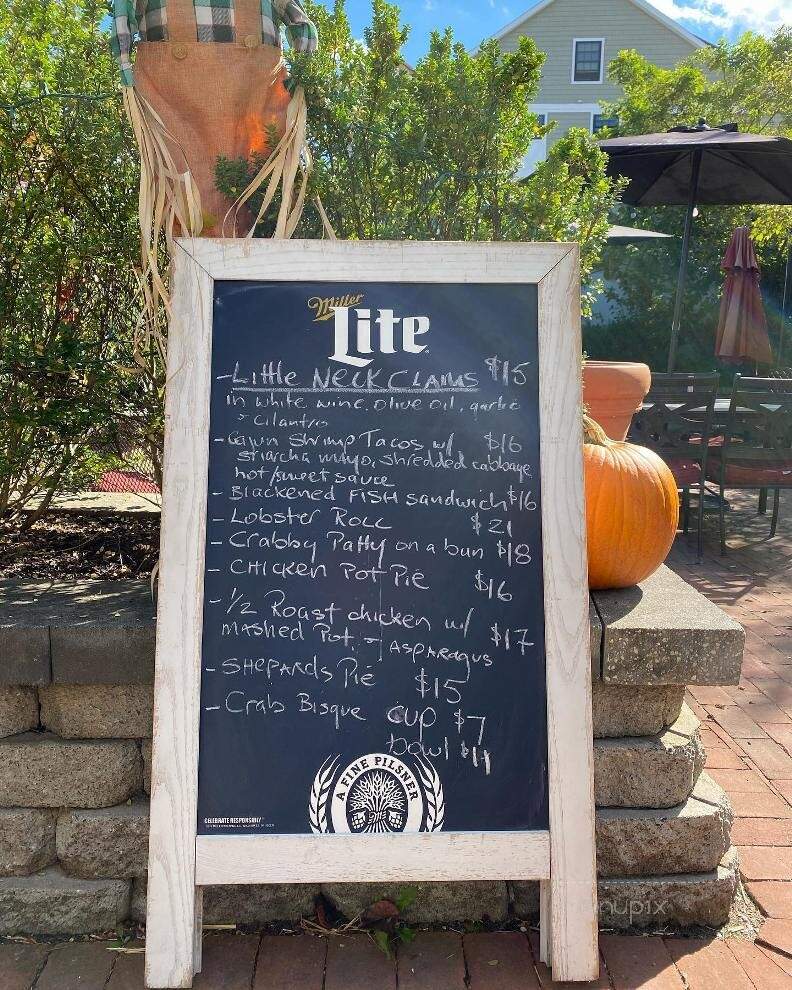 Miller
Lite
- Little Neck Clams $15
in white wine, olive oil, garlic
- cilantro
- Cajun Shrimp Tacos w/ $16
sriarcha mayo, shredded cabbage
hot/sweet sauce
- Blackened Fish sandwich $16
- Lobster Roll $21
- Crabby Patty on a bun $18
- Chicken Pot Pie $16
- 1/2 Roast chicken w/ $17
mashed Pot. - Asparagus
- Shepards Pie $15
- Crab Bisque cup $7
bowl $11
A FINE PILSNER
CELEBRATE RESPONSIBLY